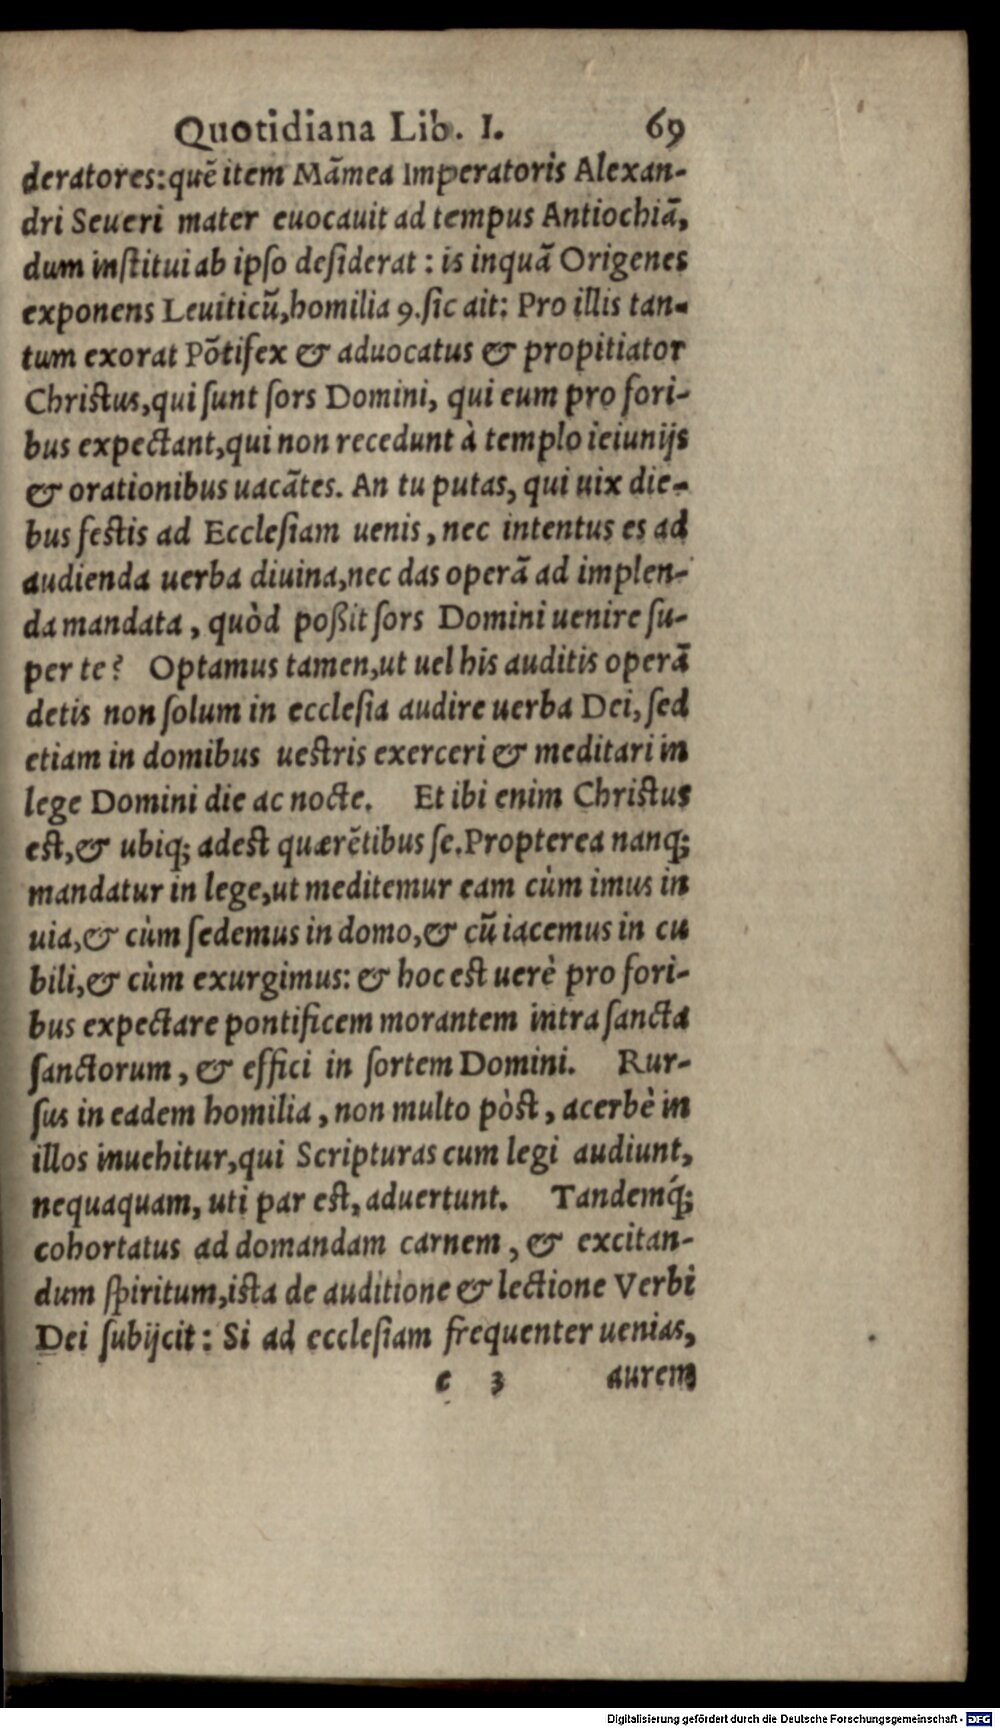 Quotidiana Lib. I. 69
deratores: quẽ item Mãmea Imperatoris Alexan-
dri Seueri mater euocauit ad tempus Antiochiã,
dum institui ab ipso desiderat : is inquã Origenes
exponens Leuiticũ, homilia 9. sic ait: Pro illis tan-
tum exorat Põtifex & aduocatus & propitiator
Christus, qui sunt sors Domini, qui eum pro fori-
bus expectant, qui non recedunt à templo ieiunijs
& orationibus uacãtes. An tu putas, qui uix die-
bus festis ad Ecclesiam uenis, nec intentus es ad
audienda uerba diuina, nec das operã ad implen-
da mandata, quòd poßit sors Domini uenire su-
per te? Optamus tamen, ut uel his auditis operã
detis non solum in ecclesia audire uerba Dei, sed
etiam in domibus uestris exerceri & meditari in
lege Domini die ac nocte. Et ibi enim Christus
est, & ubiq; adest quærẽtibus se. Propterea nanq;
mandatur in lege, ut meditemur eam cùm imus in
uia, & cùm sedemus in domo, & cũ iacemus in cu
bili, & cùm exurgimus: & hoc est uerè pro fori-
bus expectare pontificem morantem intra sancta
sanctorum, & effici in sortem Domini. Rur-
sus in eadem homilia, non multo pòst, acerbè in
illos inuehitur, qui Scripturas cum legi audiunt,
nequaquam, uti par est, aduertunt. Tandemq́;
cohortatus ad domandam carnem, & excitan-
dum spiritum, ista de auditione & lectione Verbi
Dei subijcit : Si ad ecclesiam frequenter uenias,
e 3 aurem
Digitalisierung gefördert durch die Deutsche Forschungsgemeinschaft - DFG